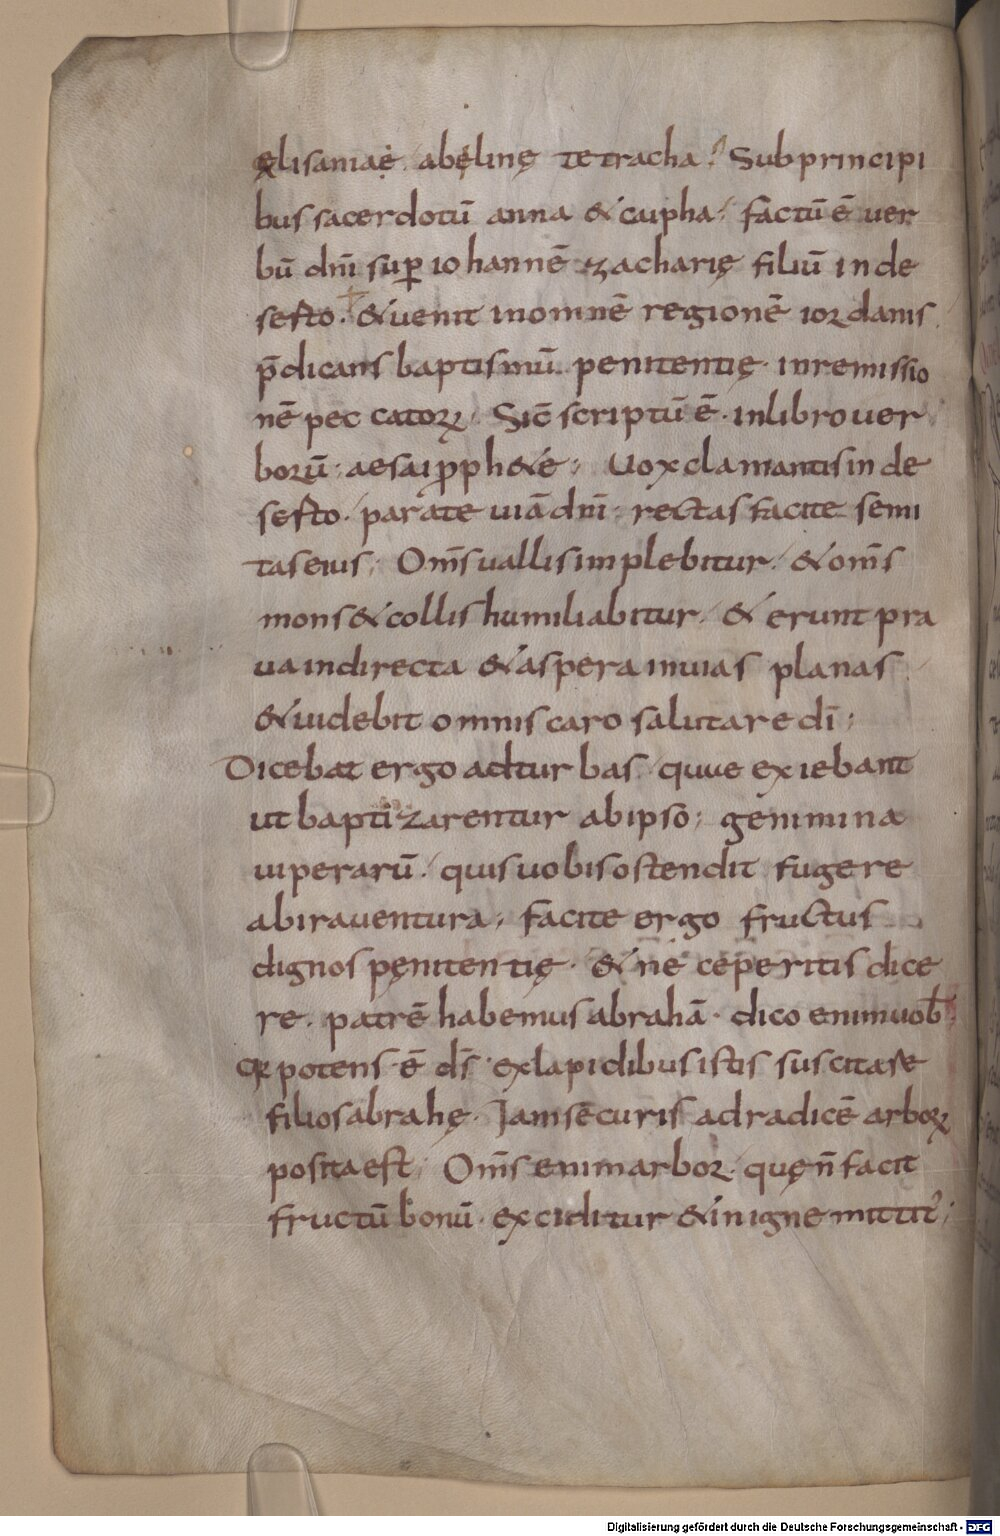 ęlisaniae abęlinę tetracha. Sub principi
bus sacerdotū anna & caipha. factū ē uer
bū dnī sup̄ iohannē zacharię filiū in de
serto. & uenit in omnē regionē iordanis
p̄dicans baptismū penitentię. in remissio
nē peccatorꝝ. Sic̄ scriptū ē. in libro uer
borū. aesai ꝓph&e; Uox clamantis in de
serto. parate uiā dnī. rectas facite semi
tas eius; Om̄s uallis implebitur. & om̄s
mons & collis humiliabitur. & erunt pra
ua in directa & aspera in uias planas
& uidebit omnis caro salutare dī;
Dicebat ergo ad turbas. quue exiebant
ut baptizarentur ab ipso; genimina
uiperarū. quis uobis ostendit fugere
ab ira uentura; facite ergo fructus
dignos pęnitentię. & ne ceperitis dice
re. patrē habemus abrahā. dico enim uob̄
qꝛ potens ē ds̄ ex lapidibus istis suscitare
filios abrahę. Iam securis ad radicē arborꝝ
posita est; Om̄s enim arbor. quę n̄ facit
fructū bonū. exciditur & in igne mittit᷒;
Digitalisierung gefördert durch die Deutsche Forschungsgemeinschaft - DFG